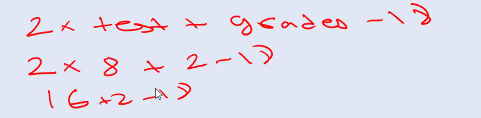 2 x test + grades - 13
2 x 8 + 2 - 13
16 + 2 - 13